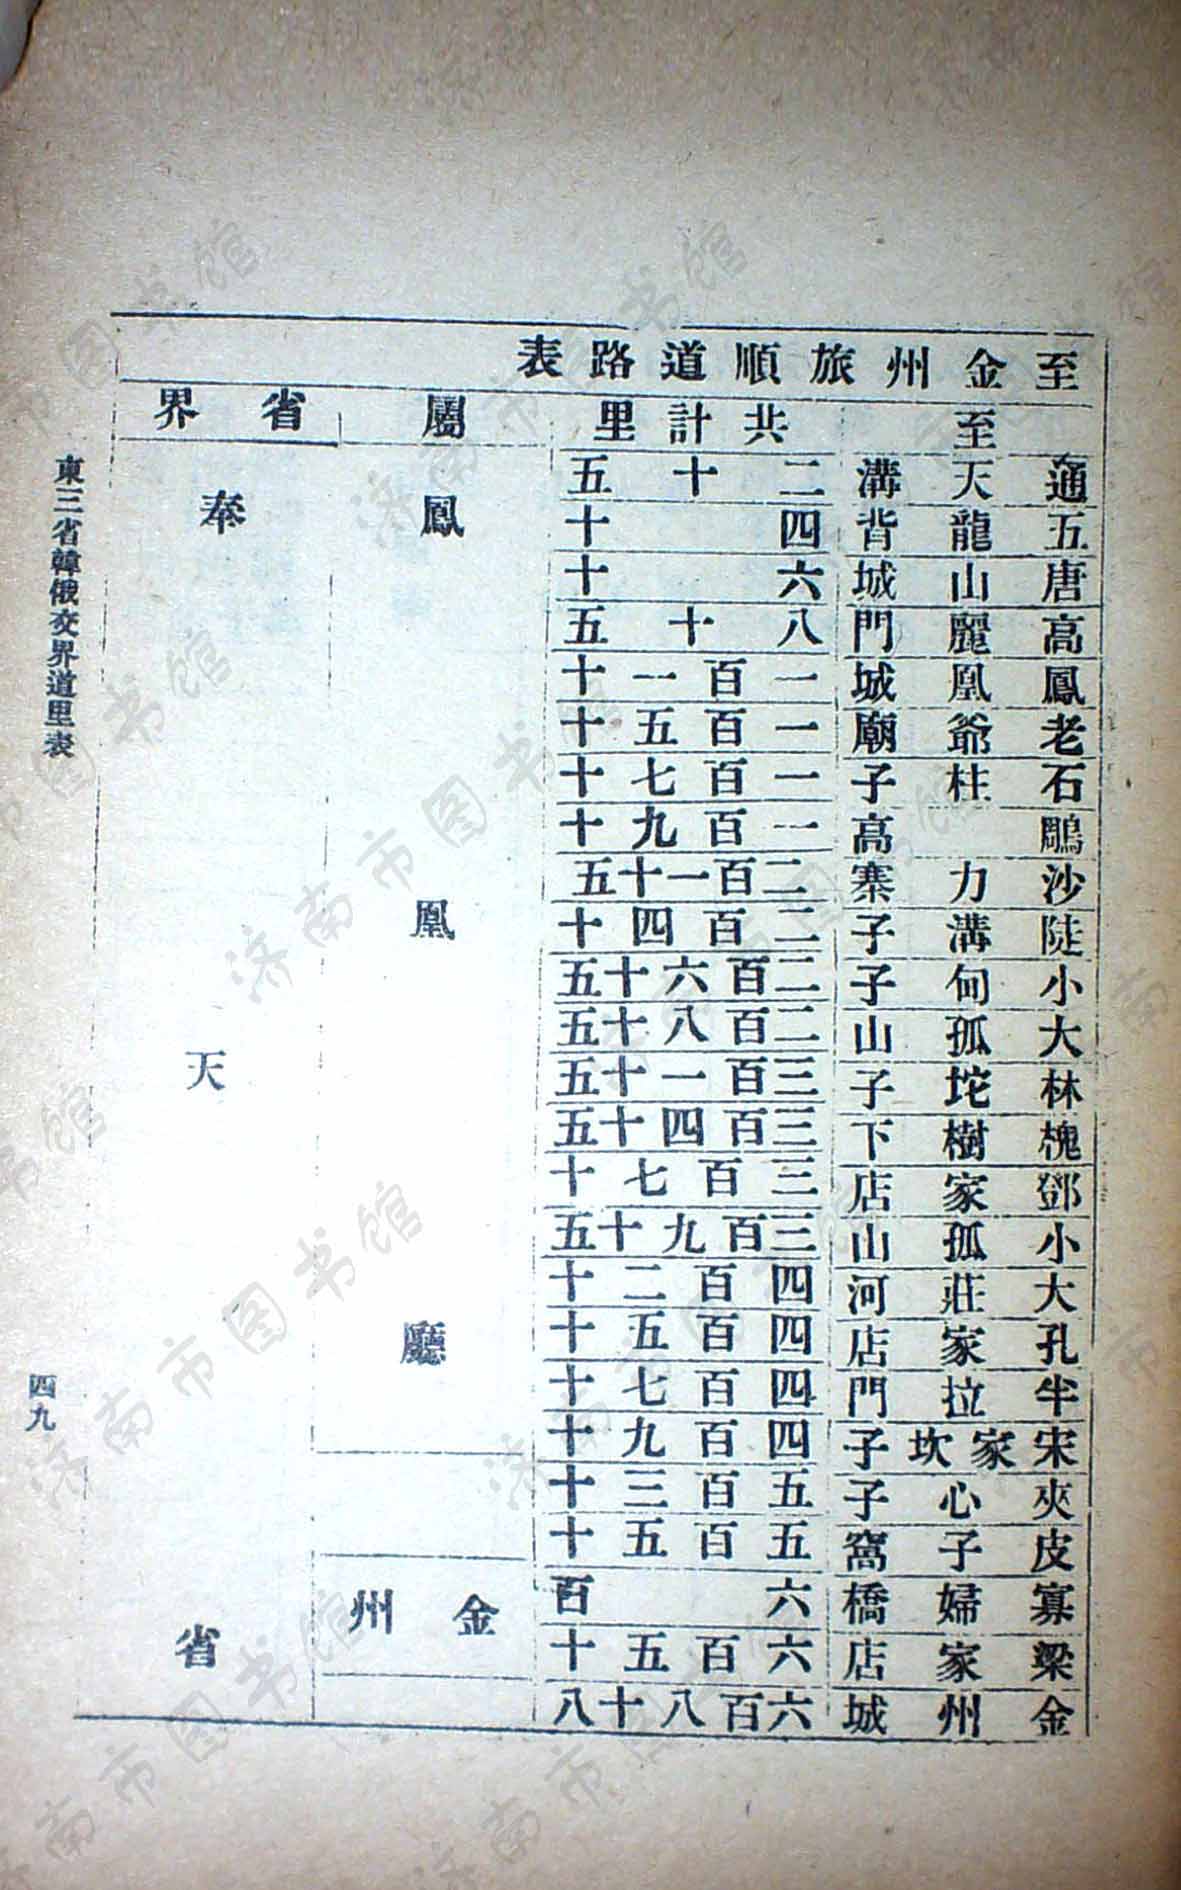 至金州旅順道路表
至 共計里 屬 省界
通天溝 二十五
五龍背 四十
唐山城 六十
高麗門 八十五
鳳凰城 一百一十
老爺廟 一百五十
石柱子 一百七十
鵰高 一百九十
沙力寨 二百一十五
陡溝子 二百四十
小甸子 二百六十五
大孤山 二百八十五
林坨子 三百一十五
槐樹下 三百四十五
鄧家店 三百七十
小孤山 三百九十五
大莊河 四百二十
孔家店 四百五十
半拉門 四百七十
宋家坎子 四百九十
夾心子 五百三十
皮子窩 五百五十
寡婦橋 六百
梁家店 六百五十
金州城 六百八十八
鳳凰廳
金州
奉天省
東三省韓俄交界道里表
四九
济南市图书馆